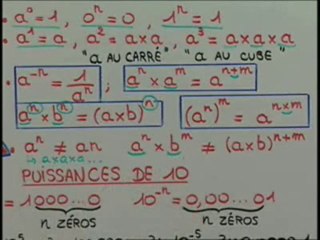 • a⁰ = 1, 0ⁿ = 0, 1ⁿ = 1
• a¹ = a, a² = a×a, a³ = a×a×a
"a AU CARRÉ" "a AU CUBE"
• a⁻ⁿ = 1/aⁿ ; aⁿ × aᵐ = aⁿ⁺ᵐ
aⁿ × bⁿ = (a×b)ⁿ (aⁿ)ᵐ = aⁿˣᵐ
aⁿ ≠ an aⁿ × bᵐ ≠ (a×b)ⁿ⁺ᵐ
↳ a×a×a...
PUISSANCES DE 10
= 1000...0 10⁻ⁿ = 0,00...01
n ZÉROS n ZÉROS